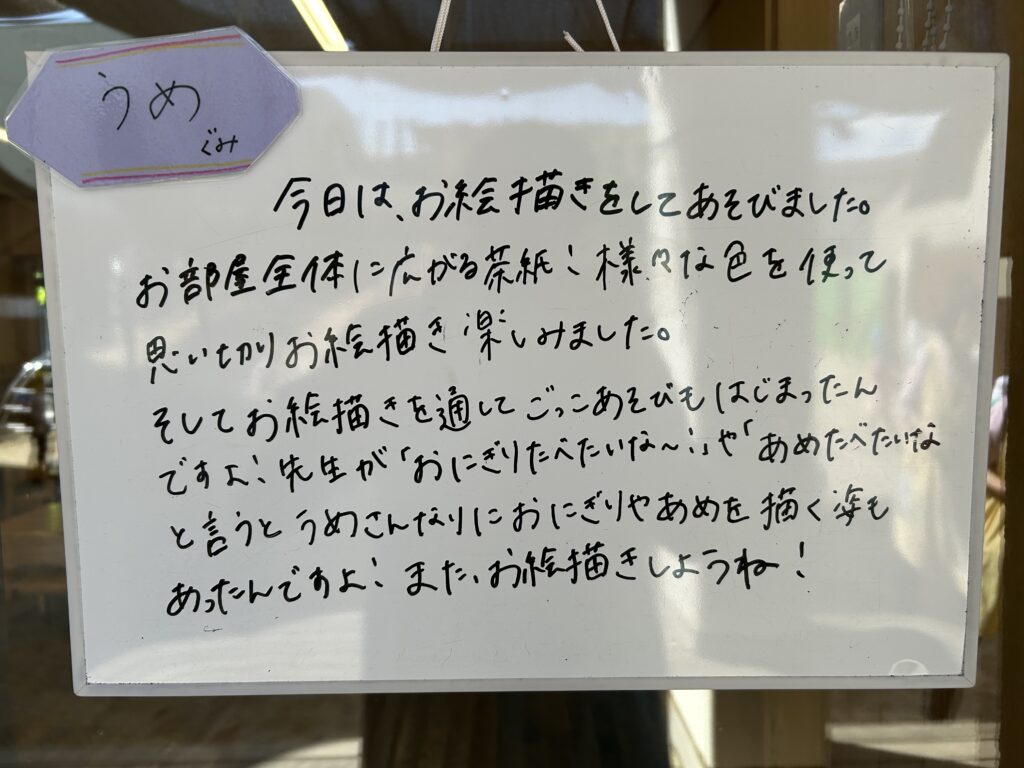 うめ
ぐみ
今日は、お絵描きをしてあそびました。
お部屋全体に広がる茶紙!様々な色を使って
思い切りお絵描き楽しみました。
そしてお絵描きを通してごっこあそびもはじまったん
ですよ!先生が「おにぎりたべたいな〜!」や「あめたべたいな
と言うとうめさんなりにおにぎりやあめを描く姿も
あったんですよ!また、お絵描きしようね!